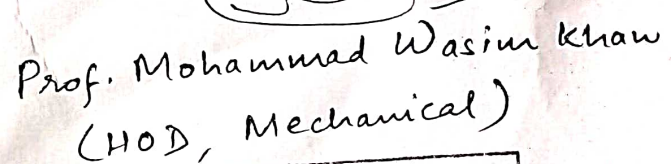 Prof. Mohammad Wasim Khan
(HOD, Mechanical)